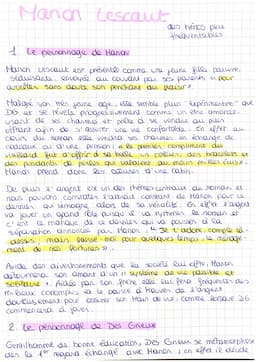 Manon Lescaut
des héros peu
fréquentables
1. Le personnage de Manon
Manon Lescaut est présentée comme une jeune fille pauvre,
séduisante, envoyée au couvent par ses parents « pour
arrêter sans doute son penchant au plaisir ».
Malgré son très jeune âge, elle semble plus "expérimentée" que
DG et se révèle progressivement comme un être amoral
usant de ses charmes et prête à se vendre au plus
offrant afin de s'assurer une vie confortable. En effet au
cours du roman elle vendra ses charmes en échange de
cadeaux ou d'une pension : « le premier compliment du
vieillard fut d'offrir à sa belle un collier, des bracelets et
des pendants de perles qui valaient au moins milles écus ».
Manon prend donc les allures d'une catin.
De plus l'argent est un des thèmes centraux du roman et
nous pouvons constater l'avidité constante de Manon pour ce
dernier qui témoigne alors de sa vénalité. En effet l'argent
va jouer un grand rôle puisqu'il va rythmer le roman et
c'est le manque de ce dernier qui va pousser à la
séparation annoncée par Manon : « Je t'adore compte là-
dessus, mais laisse-moi pour quelques temps le ménage-
ment de nos fortunes ».
Avide des divertissements que la société lui offre, Manon
détournera son amant d'un « système de vie paisible et
solitaire ». Aidée par son frère elle lui fera fréquenter des
milieux corrompus et la pauvre à trouver de l'argent
douteusement pour assurer son train de vie, comme lorsque DG
commencera à jouer.
2. Le personnage de Des Grieux
Gentilhomme de bonne éducation, Des Grieux se métamorphose
dès le 1er regard échangé avec Manon ; en effet il décide